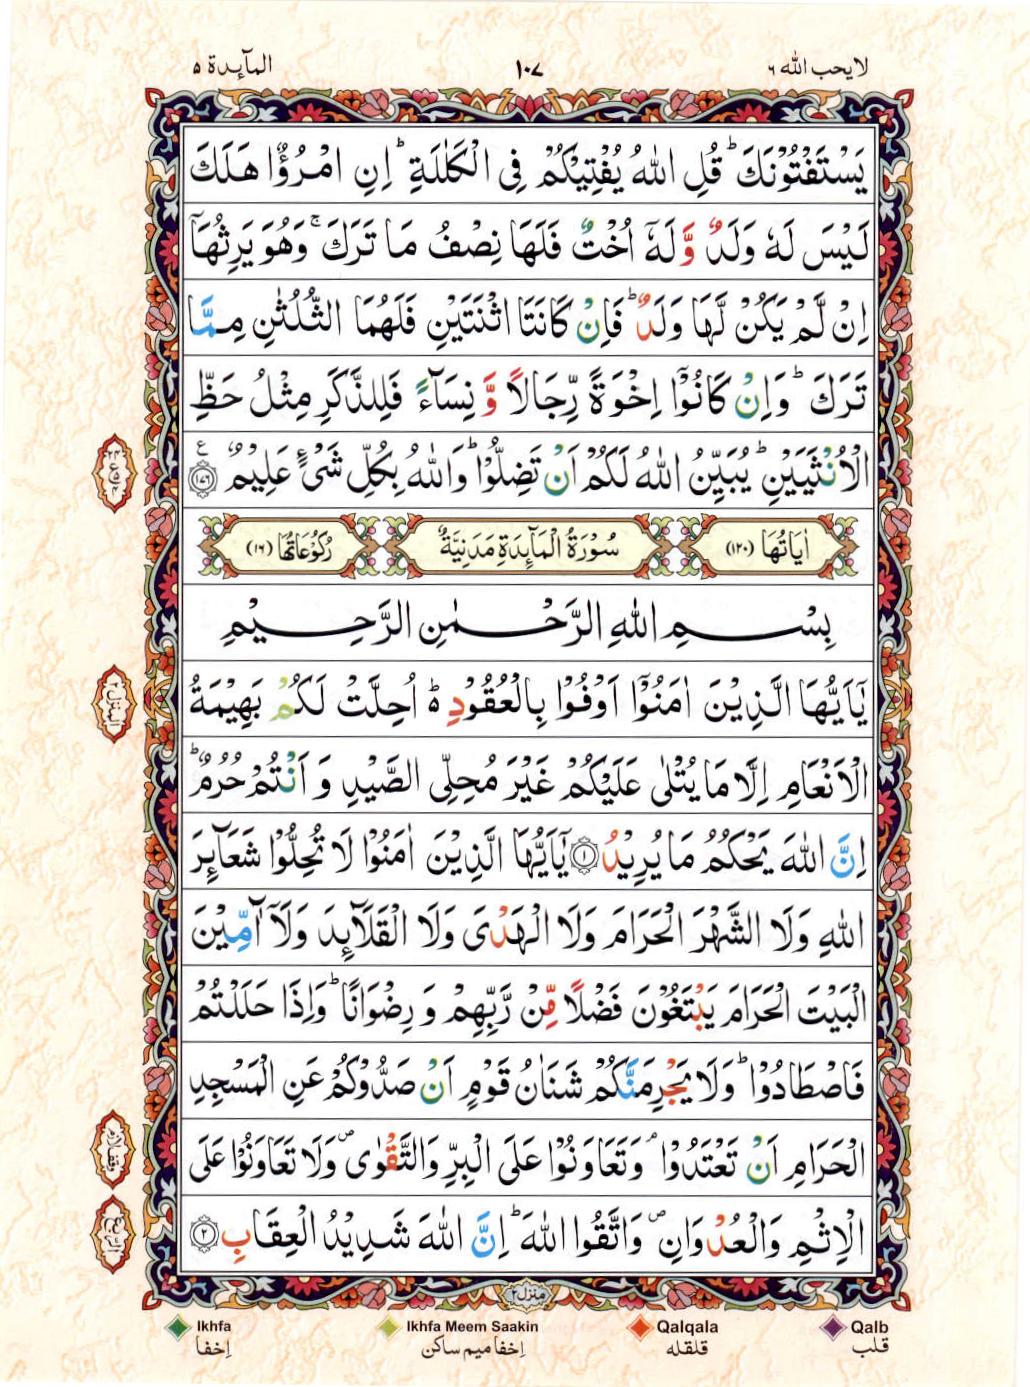 المآىِٕدة ۵
۱۰۷
لا یحب الله ۶
یَسْتَفْتُوْنَكَ ؕ قُلِ اللّٰهُ یُفْتِیْكُمْ فِی الْكَلٰلَةِ ؕ اِنِ امْرُؤٌا هَلَكَ
لَیْسَ لَهٗ وَلَدٌ وَّلَهٗۤ اُخْتٌ فَلَهَا نِصْفُ مَا تَرَكَ ۚ وَهُوَ یَرِثُهَاۤ
اِنْ لَّمْ یَكُنْ لَّهَا وَلَدٌ ؕ فَاِنْ كَانَتَا اثْنَتَیْنِ فَلَهُمَا الثُّلُثٰنِ مِمَّا
تَرَكَ ؕ وَاِنْ كَانُوْۤا اِخْوَةً رِّجَالًا وَّ نِسَآءً فَلِلذَّكَرِ مِثْلُ حَظِّ
الْاُنْثَیَیْنِ ؕ یُبَیِّنُ اللّٰهُ لَكُمْ اَنْ تَضِلُّوْا ؕ وَاللّٰهُ بِكُلِّ شَیْءٍ عَلِیْمٌ ۝۱۷۶ ع
اٰیَاتُهَا (۱۲۰) سُوْرَةُ الْمَآىِٕدَةِ مَدَنِیَّةٌ رُكُوْعَاتُهَا (۱۶)
بِسْمِ اللّٰهِ الرَّحْمٰنِ الرَّحِیْمِ
یٰۤاَیُّهَا الَّذِیْنَ اٰمَنُوْۤا اَوْفُوْا بِالْعُقُوْدِ ؕ۬ اُحِلَّتْ لَكُمْ بَهِیْمَةُ
المنزل ۲
الْاَنْعَامِ اِلَّا مَا یُتْلٰی عَلَیْكُمْ غَیْرَ مُحِلِّی الصَّیْدِ وَ اَنْتُمْ حُرُمٌ ؕ
اِنَّ اللّٰهَ یَحْكُمُ مَا یُرِیْدُ ۝۱ یٰۤاَیُّهَا الَّذِیْنَ اٰمَنُوْا لَا تُحِلُّوْا شَعَآىِٕرَ
اللّٰهِ وَلَا الشَّهْرَ الْحَرَامَ وَلَا الْهَدْیَ وَلَا الْقَلَآىِٕدَ وَلَاۤ آٰمِّیْنَ
الْبَیْتَ الْحَرَامَ یَبْتَغُوْنَ فَضْلًا مِّنْ رَّبِّهِمْ وَ رِضْوَانًا ؕ وَاِذَا حَلَلْتُمْ
فَاصْطَادُوْا ؕ وَلَا یَجْرِمَنَّكُمْ شَنَاٰنُ قَوْمٍ اَنْ صَدُّوْكُمْ عَنِ الْمَسْجِدِ
الْحَرَامِ اَنْ تَعْتَدُوْا ۘ وَتَعَاوَنُوْا عَلَی الْبِرِّ وَالتَّقْوٰی ۪ وَلَا تَعَاوَنُوْا عَلَی
الْاِثْمِ وَالْعُدْوَانِ ۪ وَاتَّقُوا اللّٰهَ ؕ اِنَّ اللّٰهَ شَدِیْدُ الْعِقَابِ ۝۲
منزل ۲
Ikhfa
اِخفا
Ikhfa Meem Saakin
اِخفا میم ساکن
Qalqala
قلقله
Qalb
قلب